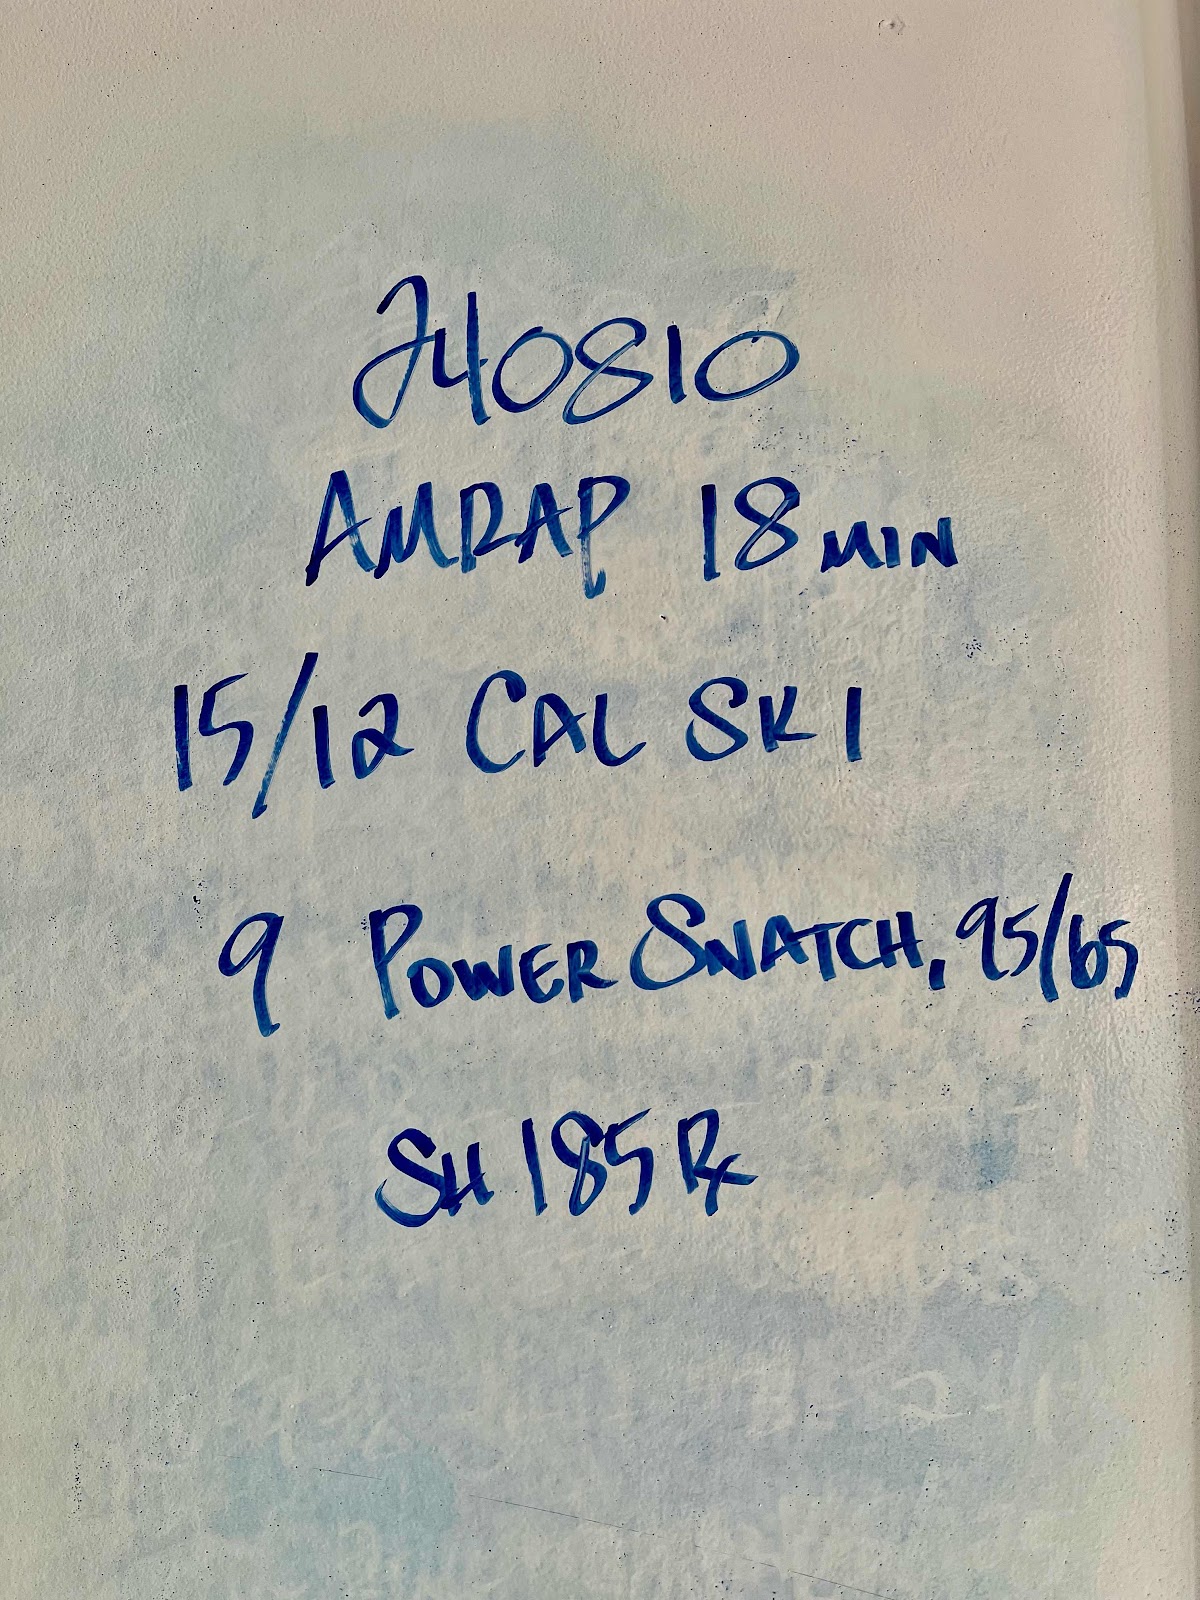 240810
AMRAP 18 MIN
15/12 CAL SKI
9 POWER SNATCH, 95/65
SH 185 Rx